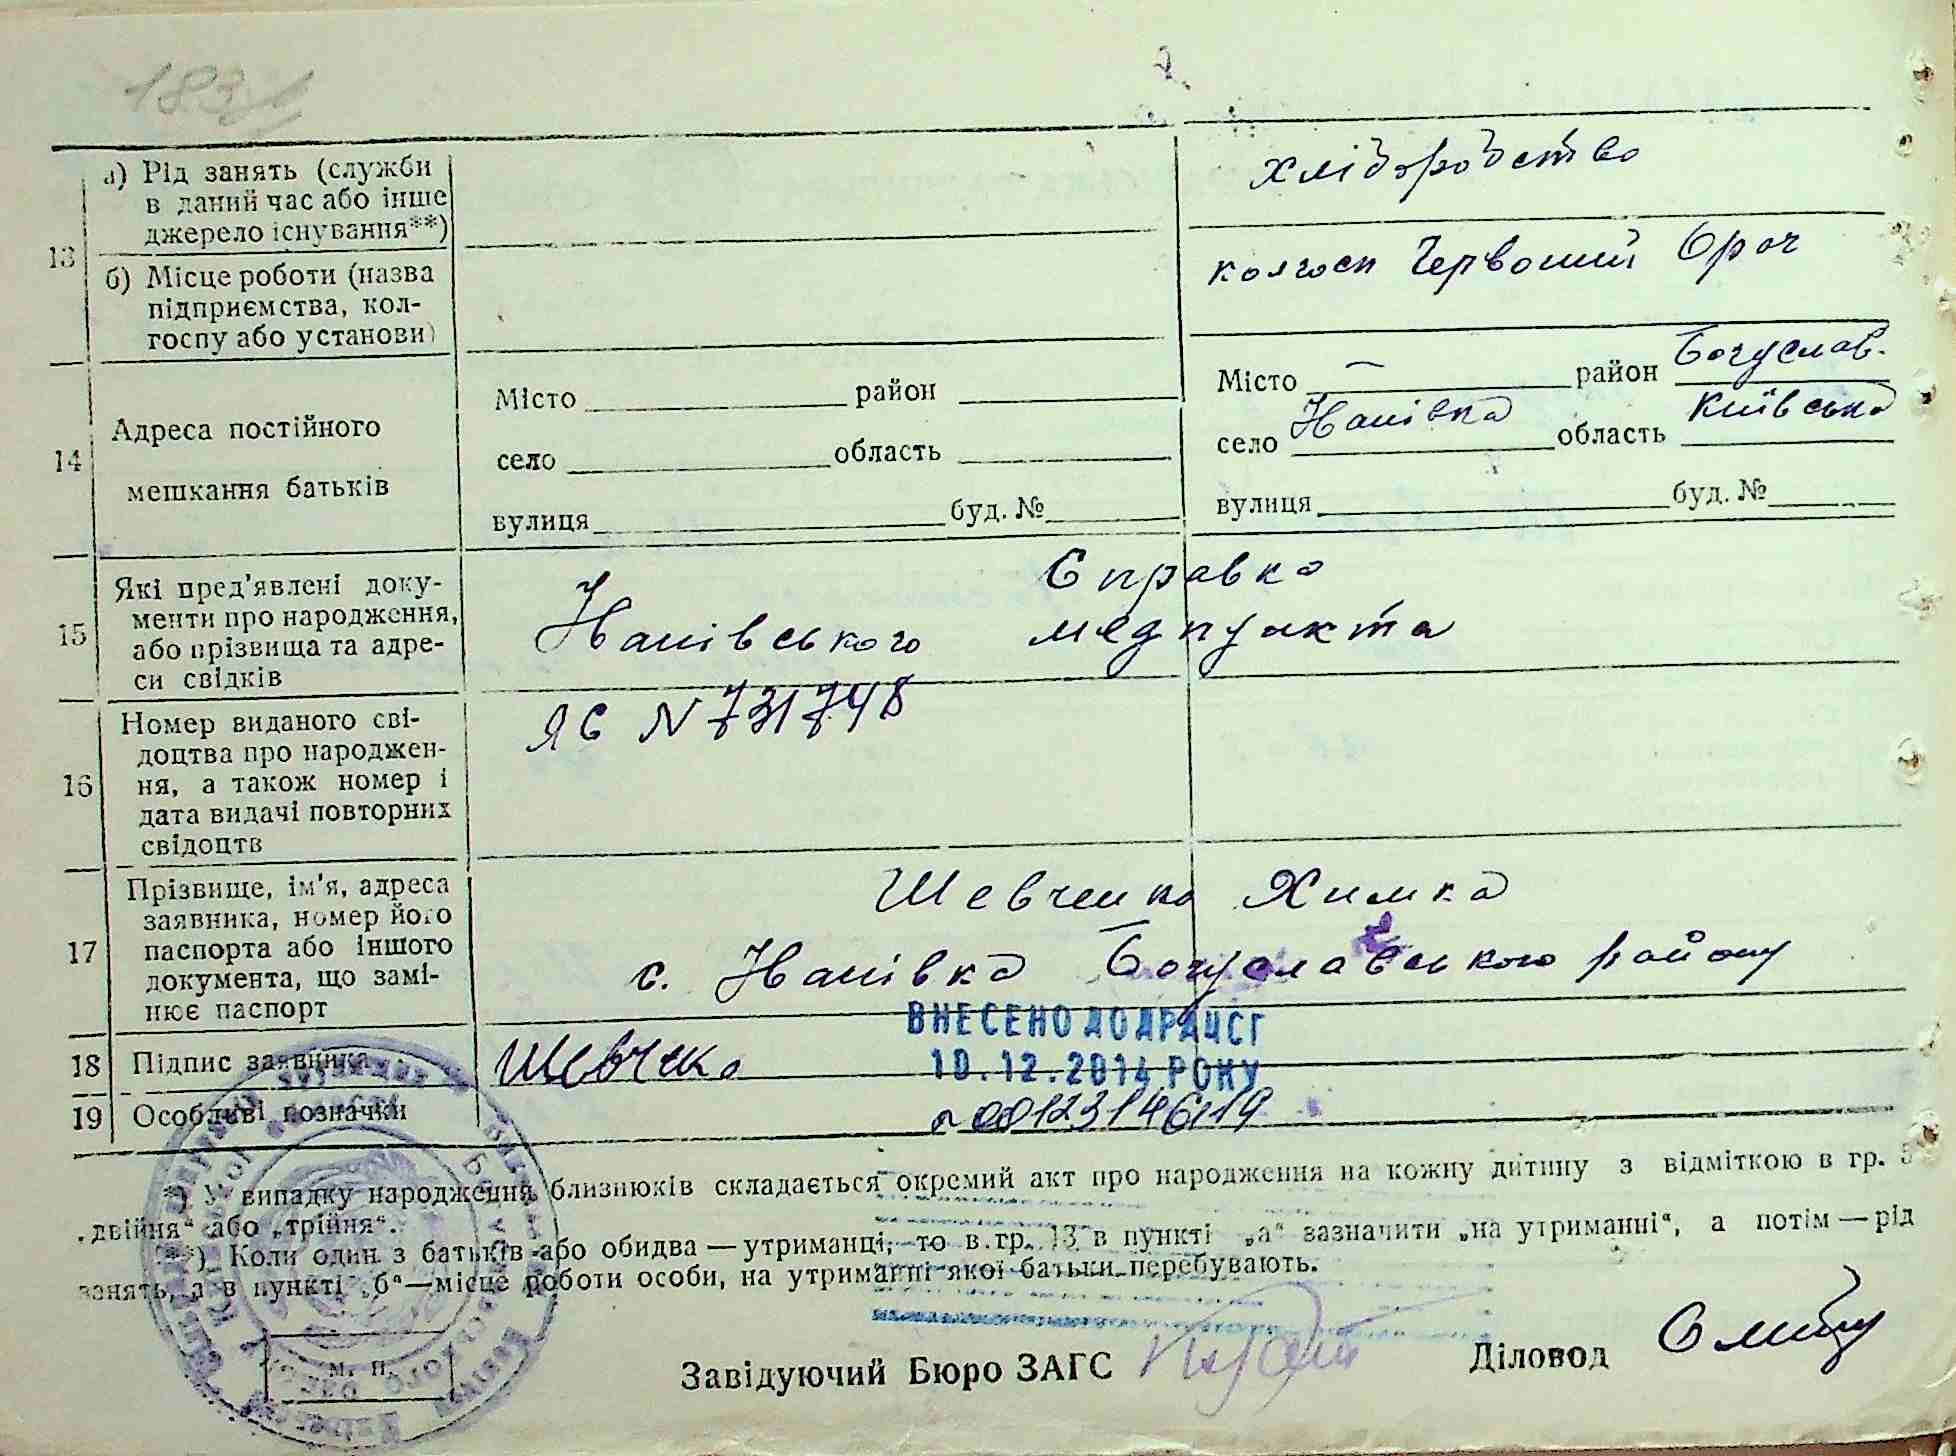 183
13
а) Рід занять (служби
в даний час або інше
джерело існування**)
хліборобство
б) Місце роботи (назва
підприємства, кол-
госпу або установи)
колгосп Червоний Орач
14
Адреса постійного
мешкання батьків
Місто район
село область
вулиця буд. №
Місто — район Богуслав.
село Нанівка область Київська
вулиця буд. №
15
Які пред'явлені доку-
менти про народження,
або прізвища та адре-
си свідків
Справка
Нанівського медпункта
16
Номер виданого сві-
доцтва про народжен-
ня, а також номер і
дата видачі повторних
свідоцтв
ЯС N 731748
17
Прізвище, ім'я, адреса
заявника, номер його
паспорта або іншого
документа, що замі-
нює паспорт
Шевченко Химка
с. Нанівка Богуславського району
18 Підпис заявника
ВНЕСЕНО ДО ДРАЦСГ
10.12.2014 РОКУ
19 Особливі позначки
00123146119
*) У випадку народження близнюків складається окремий акт про народження на кожну дитину з відміткою в гр. 5
„двійня“ або „трійня“.
**) Коли один з батьків або обидва — утриманці, то в гр. 13 в пункті „а“ зазначити „на утриманні“, а потім — рід
занять, а в пункті „б“—місце роботи особи, на утриманні якої батьки перебувають.
М. П.
Завідуючий Бюро ЗАГС
Діловод